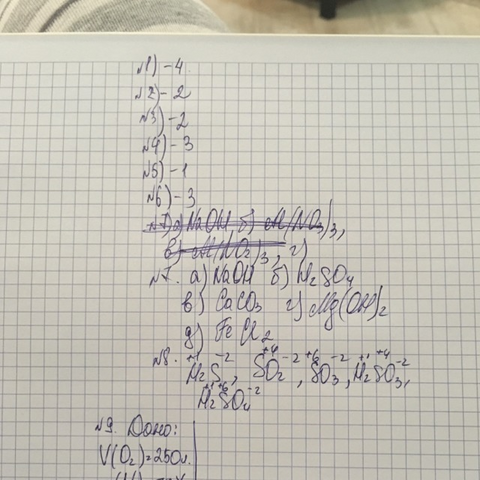 №1) - 4
№2) - 2
№3) - 2
№4) - 3
№5) - 1
№6) - 3
№7) а) NaOH б) Al(NO₃)₃,
в) Al(NO₂)₃, г)
№7. а) NaOH б) H₂SO₄
в) CaCO₃ г) Mg(OH)₂
д) FeCl₂
№8. H₂⁺¹S⁻², S⁺⁴O₂⁻², S⁺⁶O₃⁻², H₂⁺¹S⁺⁴O₃⁻²,
H₂⁺¹S⁺⁶O₄⁻²
№9. Дано:
V(O₂)=250л.